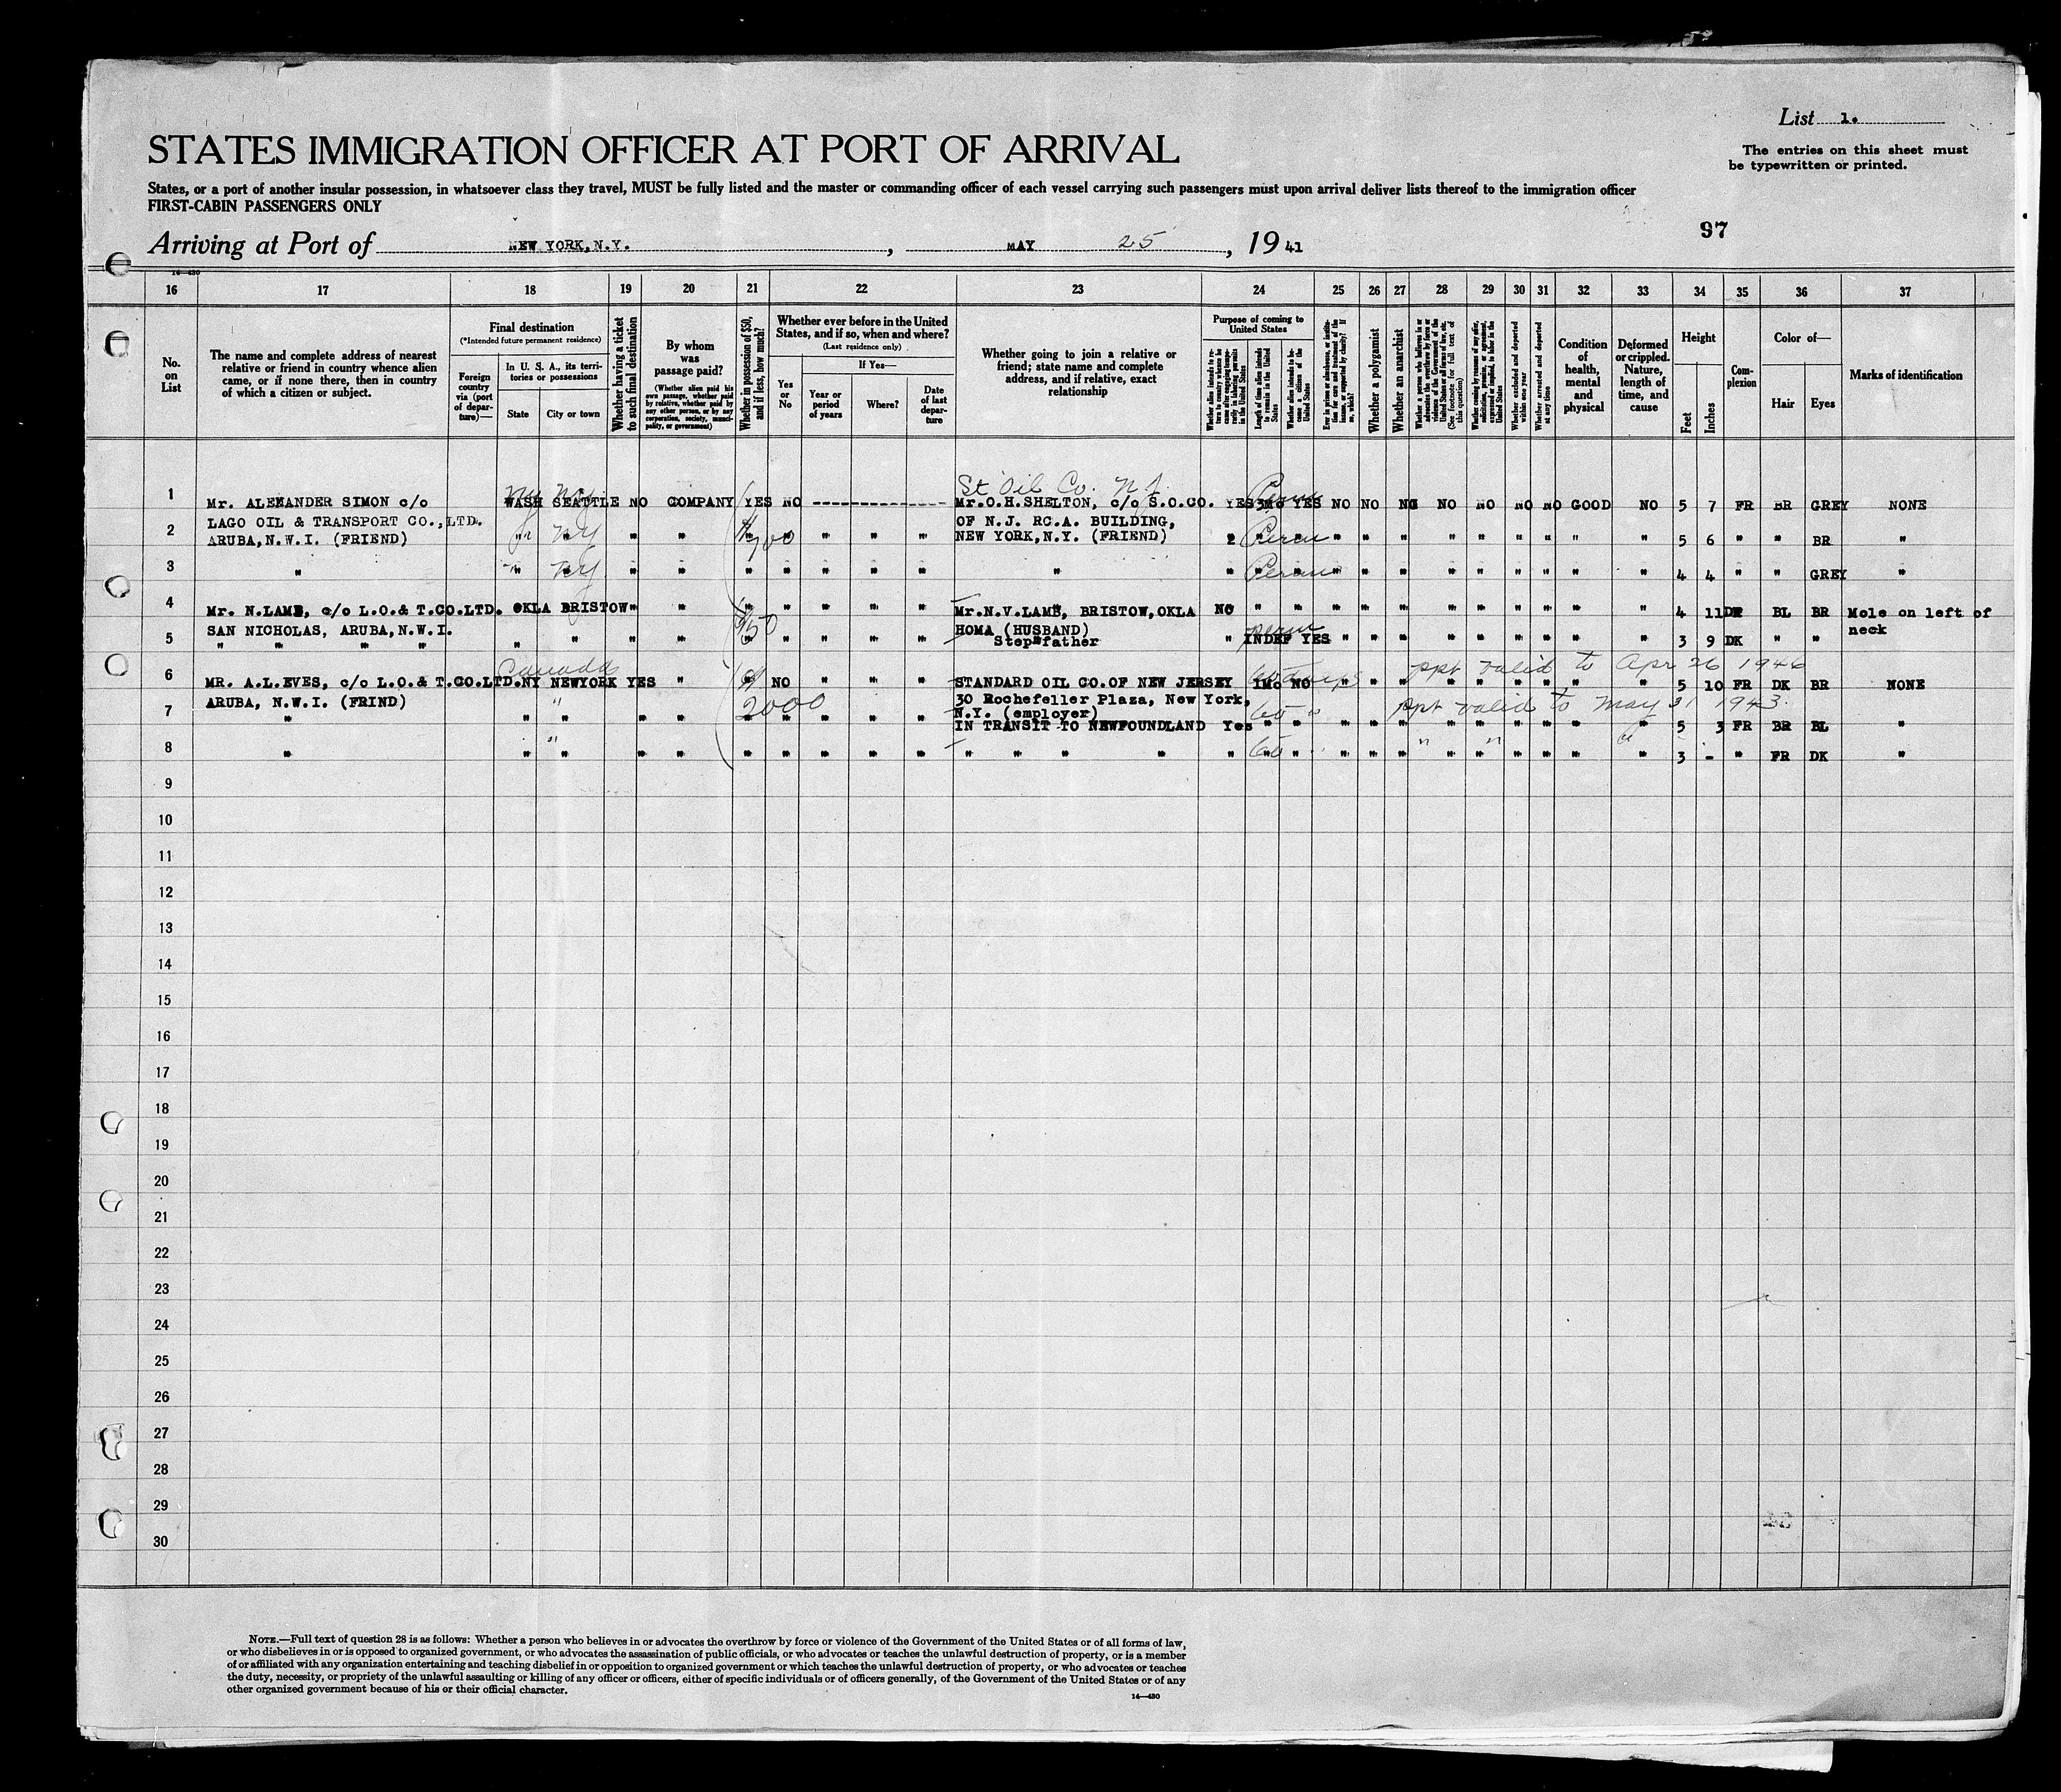 List 1.
STATES IMMIGRATION OFFICER AT PORT OF ARRIVAL
The entries on this sheet must
be typewritten or printed.
States, or a port of another insular possession, in whatsoever class they travel, MUST be fully listed and the master or commanding officer of each vessel carrying such passengers must upon arrival deliver lists thereof to the immigration officer
FIRST-CABIN PASSENGERS ONLY
97
Arriving at Port of NEW YORK, N.Y. , MAY 25 , 19 41
14—430
16 17 18 19 20 21 22 23 24 25 26 27 28 29 30 31 32 33 34 35 36 37
No. on List
The name and complete address of nearest relative or friend in country whence alien came, or if none there, then in country of which a citizen or subject.
Final destination
(*Intended future permanent residence)
Foreign country via (port of departure)—
In U. S. A., its territories or possessions
State
City or town
Whether having a ticket to such final destination
By whom was passage paid?
(Whether alien paid his own passage, whether paid by relative, whether paid by any other person, or by any corporation, society, municipality, or government)
Whether in possession of $50, and if less, how much?
Whether ever before in the United States, and if so, when and where?
(Last residence only)
Yes or No
If Yes—
Year or period of years
Where?
Date of last departure
Whether going to join a relative or friend; state name and complete address, and if relative, exact relationship
Purpose of coming to United States
Length of time alien intends to remain in the United States
Whether alien intends to become a citizen of the United States
Whether a polygamist
Whether an anarchist
(See footnote for full text of this question)
Whether excluded and deported within one year
Whether arrested and deported at any time
Condition of health, mental and physical
Deformed or crippled. Nature, length of time, and cause
Height
Feet
Inches
Complexion
Color of—
Hair
Eyes
Marks of identification
St Oil Co. N J.
1 Mr. ALEXANDER SIMON c/o WASH SEATTLE NO COMPANY YES NO Mr.O.H.SHELTON, c/o S.O.CO. YES 3Mo YES NO NO NO NO NO NO NO GOOD NO 5 7 FR BR GREY NONE
LAGO OIL & TRANSPORT CO.,LTD. OF N.J. RC.A. BUILDING,
2 ARUBA,N.W.I. (FRIEND) " NY " " " " " " NEW YORK,N.Y. (FRIEND) " " " " " " " " " " 5 6 " " BR "
3 " " NY " " " " " " " " " " " " " " " " " " " " 4 4 " " GREY "
4 Mr. N.LAMB, c/o L.O.& T.CO.LTD. OKLA BRISTOW " " " " " " " Mr.N.V.LAMB, BRISTOW,OKLA NO " " " " " " " " " " " 4 11 DR BL BR Mole on left of
SAN NICHOLAS, ARUBA,N.W.I. $150 HOMA (HUSBAND) neck
5 " " " " " " " " " " " " " Stepfather " INDEF YES " " " " " " " " " 3 9 DK " "
Canada 60 days ppt valid to Apr 26 1946
6 MR. A.L.EVES, c/o L.O.& T.CO.LTD. NY NEWYORK YES " NO " " " STANDARD OIL CO.OF NEW JERSEY 1Mo NO " " " " " " " " " 5 10 FR DK BR NONE
ARUBA, N.W.I. (FRIND) " 2000 30 Rochefeller Plaza, New York, 60 " ppt valid to May 31 1943.
7 " " " " " " " " " " N.Y. (employer)
IN TRANSIT TO NEWFOUNDLAND Yes " " " " " " " " " 5 3 FR BR BL "
8 " " " " " " " " " " " " " " " 60 " " " " " " " " " " 3 - " FR DK "
9
10
11
12
13
14
15
16
17
18
19
20
21
22
23
24
25
26
27
28
29
30
NOTE.—Full text of question 28 is as follows: Whether a person who believes in or advocates the overthrow by force or violence of the Government of the United States or of all forms of law,
or who disbelieves in or is opposed to organized government, or who advocates the assassination of public officials, or who advocates or teaches the unlawful destruction of property, or is a member
of or affiliated with any organization entertaining and teaching disbelief in or opposition to organized government or which teaches the unlawful destruction of property, or who advocates or teaches
the duty, necessity, or propriety of the unlawful assaulting or killing of any officer or officers, either of specific individuals or of officers generally, of the Government of the United States or of any
other organized government because of his or their official character.
14—430